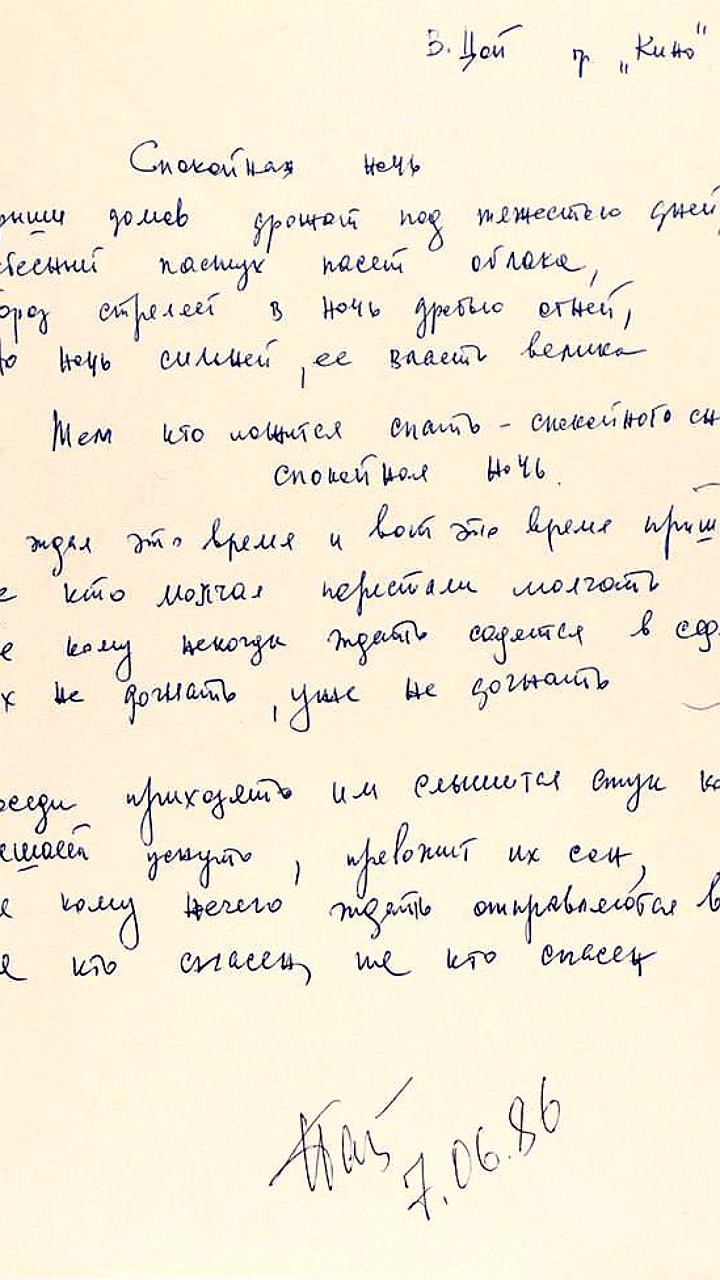 В. Цой гр „Кино"
Спокойная ночь
рыши домов дрожат под тяжестью дней,
ебесный пастух пасет облака,
ород стреляет в ночь дробью огней,
о ночь сильней, ее власть велика
Тем кто ложится спать - спокойного сн
спокойная ночь.
ждал это время и вот это время приш
е кто молчал перестали молчать
е кому некогда ждать садятся в сед
х не догнать, уже не догнать
оседи приходят им слышится стук ко
ешает уснуть, тревожит их сон,
е кому нечего ждать отправляются в
е кто спасен, те кто спасен
Цой
7.06.86